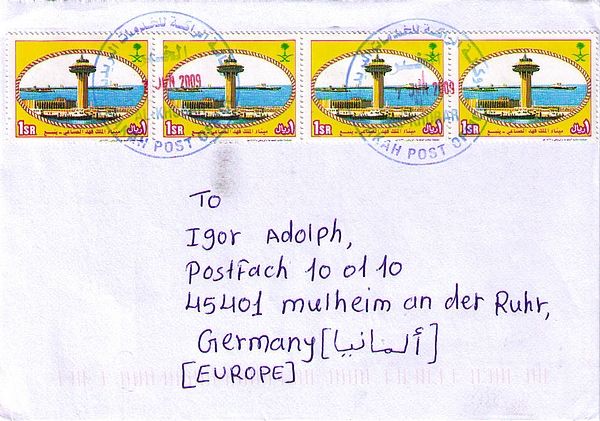 1SR ريال 1 ميناء الملك فهد الصناعي - ينبع
1SR ريال 1 ميناء الملك فهد الصناعي - ينبع
1SR ريال 1 ميناء الملك فهد الصناعي - ينبع
1SR ريال 1 ميناء الملك فهد الصناعي - ينبع
2009
POST
2009
KAH POST
To
Igor Adolph,
Postfach 10 01 10
45401 mulheim an der Ruhr,
Germany [ألمانيا]
[EUROPE]